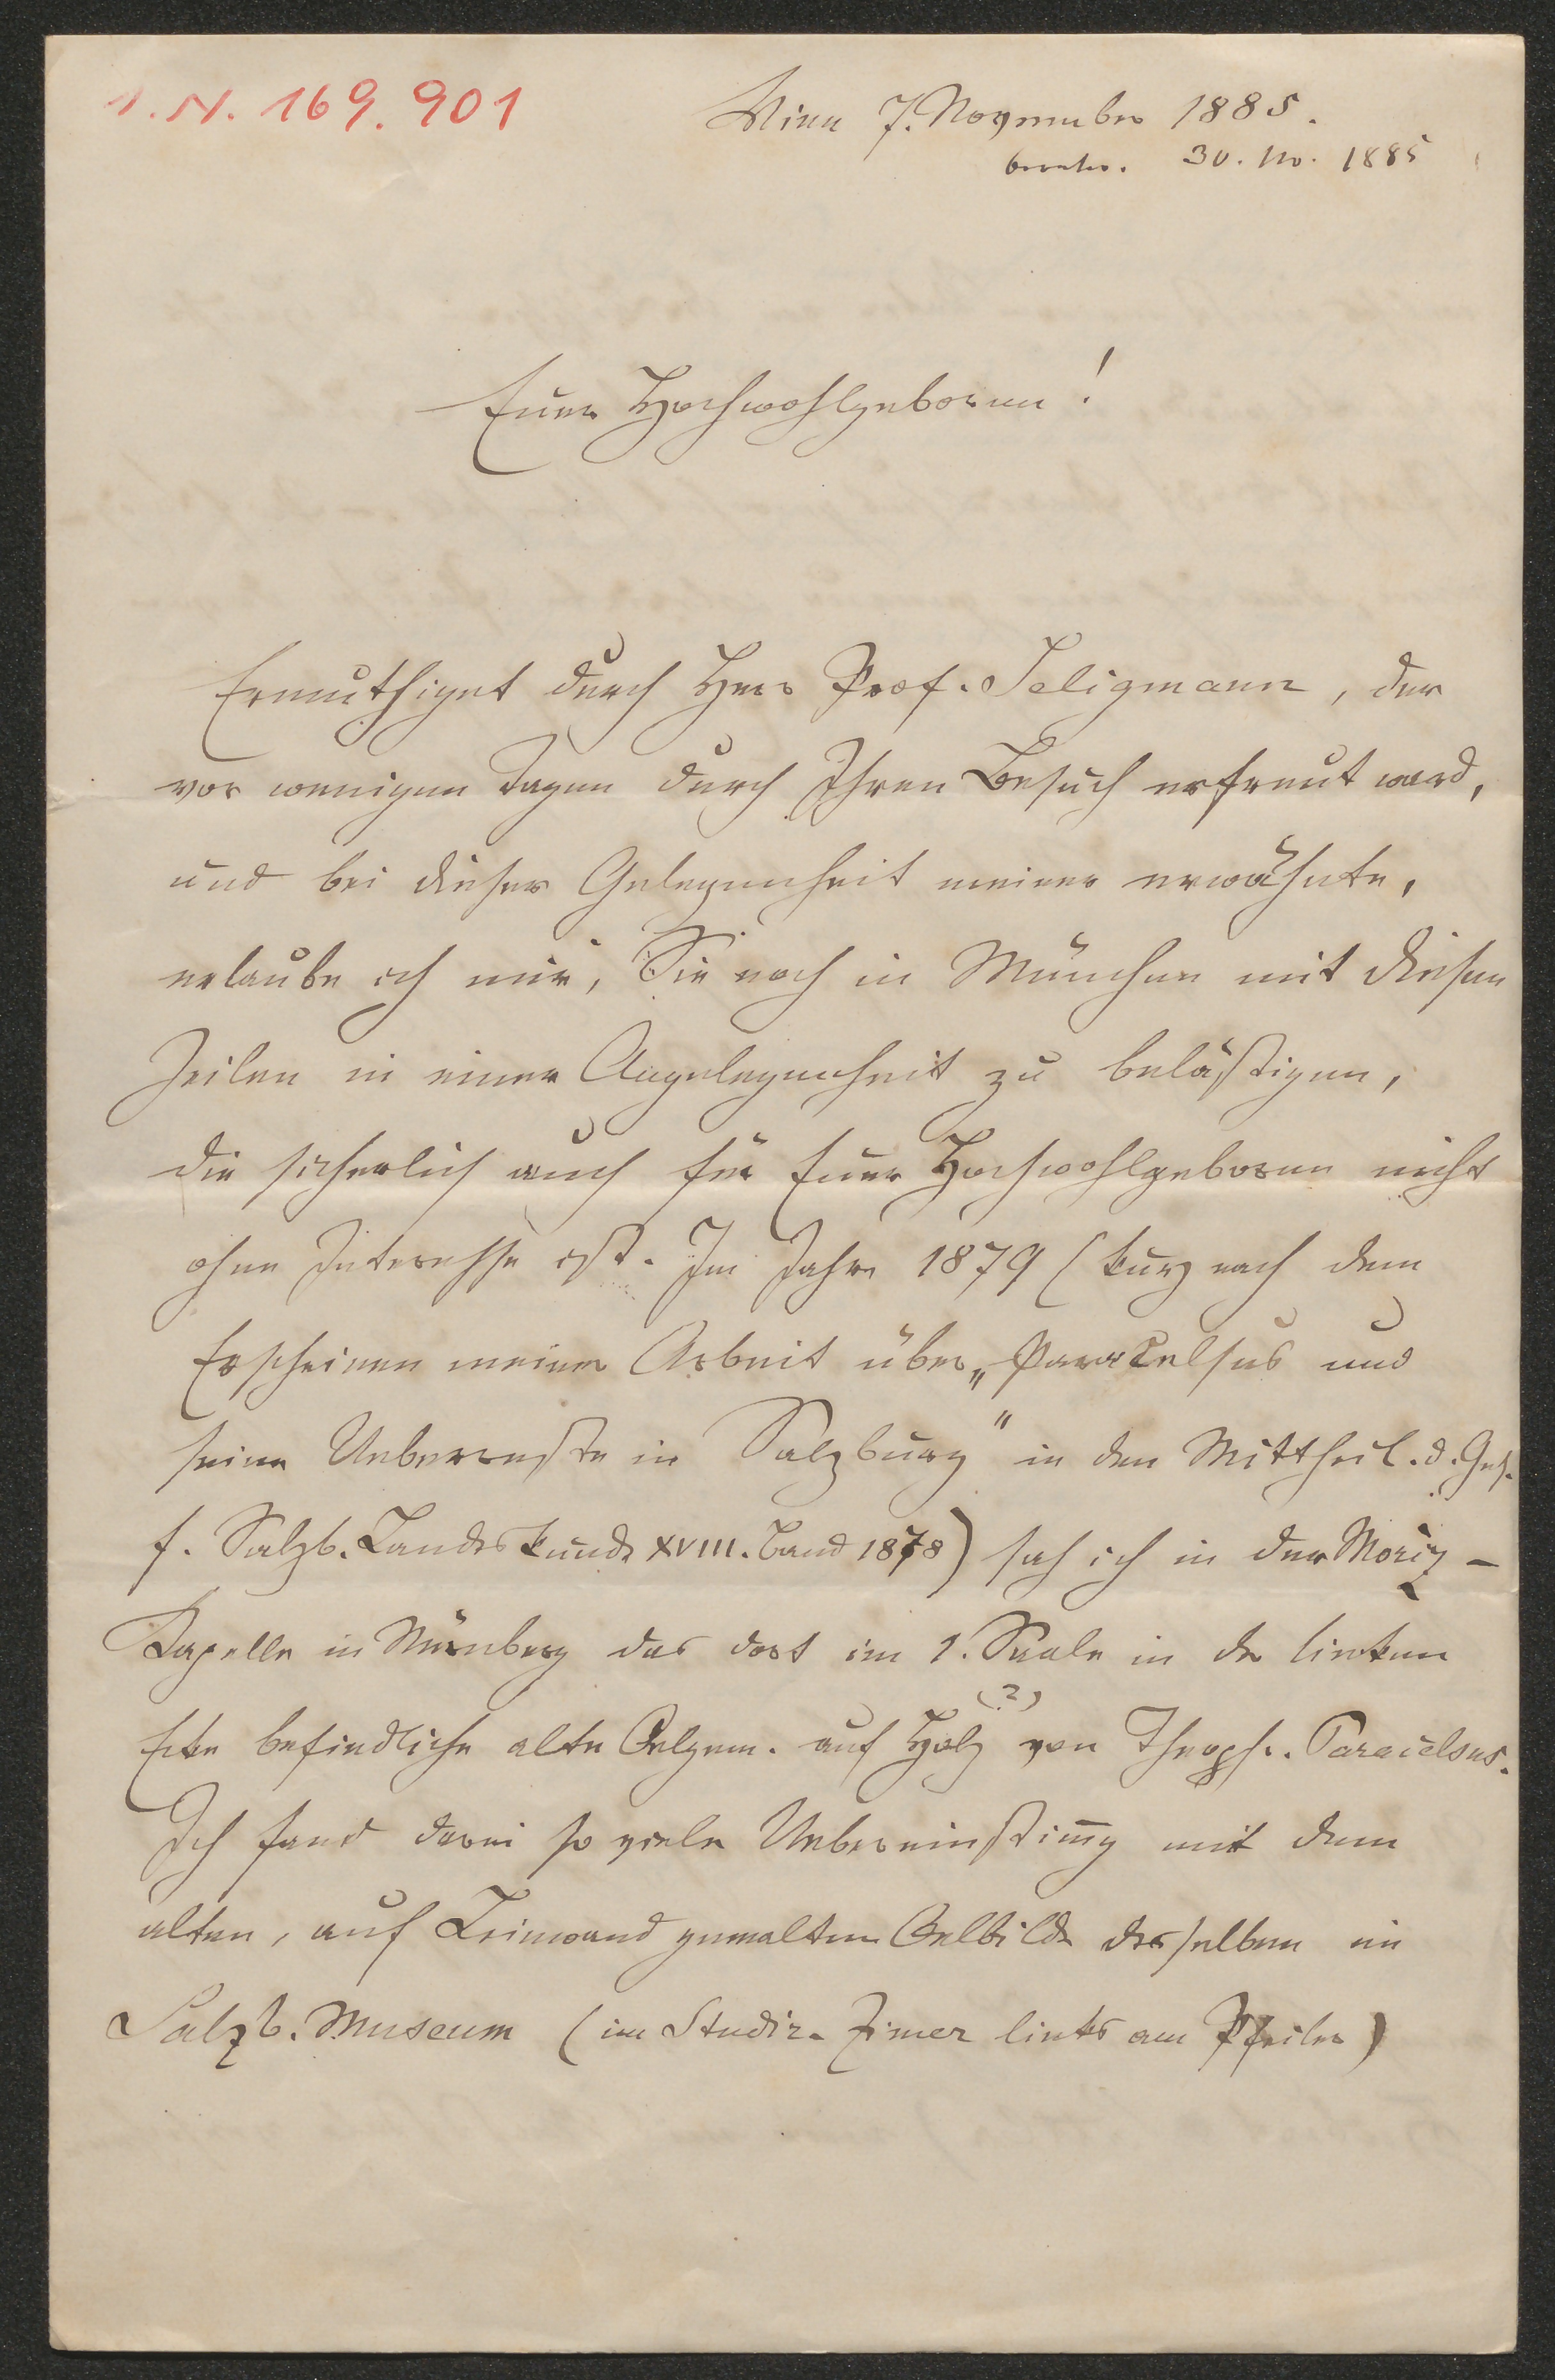 I. N. 169.901
Wien 7. November 1885.
beantw. 30. No. 1885
Euer Hochwohlgeboren!
Ermuthiget durch Herr Prof. Seligmann, der
vor wenigen Tagen durch Ihren Besuch erfreut ward,
und bei dieser Gelegenheit meiner erwähnte,
erlaube ich mir, Sie noch in München mit diesen
Zeilen in einer Angelegenheit zu belästigen,
die sicherlich auch für Euer Hochwohlgeboren nicht
ohne Interesse ist. Im Jahre 1879 (kurz nach dem
Erscheinen meiner Arbeit über „Paracelsus und
seine Ueberreste in Salzburg" in den Mittheil. d. Ges.
f. Salzb. Landeskunde XVIII. Band 1878) sah ich in der Moriz-
Kapelle in Nürnberg das dort im 1. Saale in der linken
Ecke befindliche alte Oelgem. auf Holz (?) von Theoph. Paracelsus.
Ich fand darin so viele Uebereinstim̅g mit dem
alten, auf Leinwand gemalten Oelbilde desselben im
Salzb. Museum (im Studir-Zim̅er links am Pfeiler)